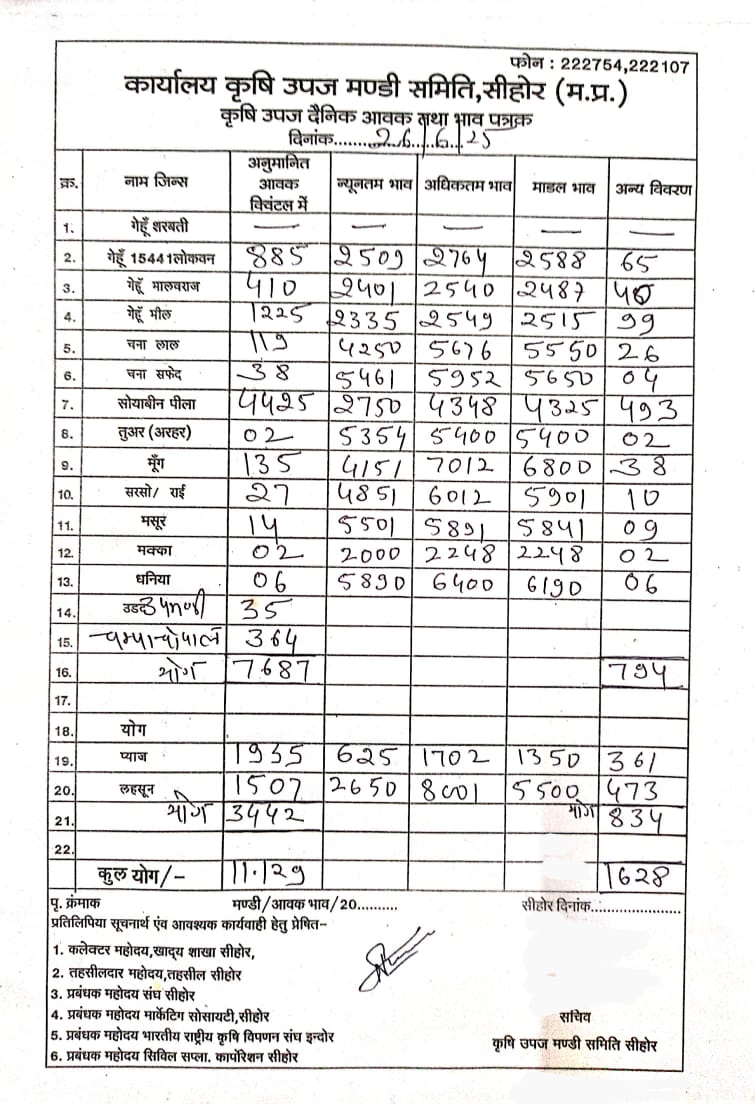 फोन : 222754,222107
कार्यालय कृषि उपज मण्डी समिति,सीहोर (म.प्र.)
कृषि उपज दैनिक आवक तथा भाव पत्रक
दिनांक......26/6/25
क्र. नाम जिन्स अनुमानित आवक क्विंटल में न्यूनतम भाव अधिकतम भाव माडल भाव अन्य विवरण
1. गेहूँ शरबती — — — — —
2. गेहूँ 15441लोकवन 885 2509 2764 2588 65
3. गेहूँ मालवराज 410 2401 2540 2487 40
4. गेहूँ मील 1225 2335 2549 2515 99
5. चना लाल 119 4250 5676 5550 26
6. चना सफेद 38 5461 5952 5650 04
7. सोयाबीन पीला 4425 2750 4348 4325 493
8. तुअर (अरहर) 02 5354 5400 5400 02
9. मूँग 135 4151 7012 6800 38
10. सरसो/ राई 27 4851 6012 5901 10
11. मसूर 14 5501 5891 5841 09
12. मक्का 02 2000 2248 2248 02
13. धनिया 06 5890 6400 6190 06
14. उडद 35
15. 364
16. योग 7687 794
17.
18. योग
19. प्याज 1935 625 1702 1350 361
20. लहसून 1507 2650 8001 5500 473
21. योग 3442 योग 834
22.
कुल योग/- 11129 1628
पृ. क्रंमाक मण्डी/आवक भाव/20.......... सीहोर दिनांक.......................
प्रतिलिपिया सूचनार्थ एंव आवश्यक कार्यवाही हेतु प्रेषित-
1. कलेक्टर महोदय,खाद्य शाखा सीहोर,
2. तहसीलदार महोदय,तहसील सीहोर
3. प्रबंधक महोदय संघ सीहोर
4. प्रबंधक महोदय मार्केटिंग सोसायटी,सीहोर
5. प्रबंधक महोदय भारतीय राष्ट्रीय कृषि विपणन संघ इन्दोर
6. प्रबंधक महोदय सिविल सप्ला. कार्पोरेशन सीहोर
सचिव
कृषि उपज मण्डी समिति सीहोर